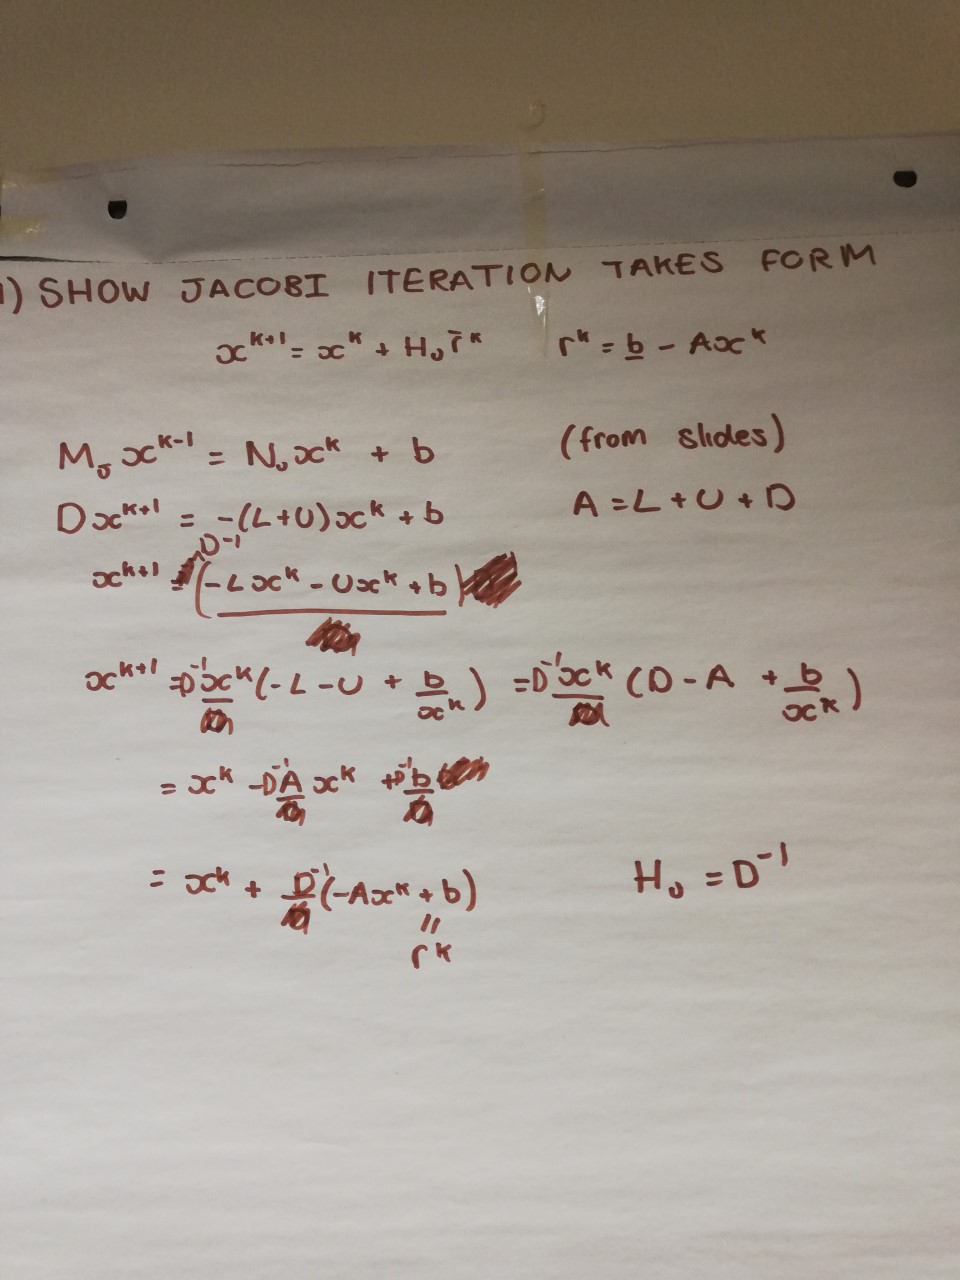 1) SHOW JACOBI ITERATION TAKES FORM
x^{k+1} = x^k + H_J r̄^k    r^k = b̲ - Ax^k
M_J x^{k-1} = N_J x^k + b    (from slides)
Dx^{k+1} = -(L+U)x^k + b    A = L + U + D
x^{k+1} = D^{-1}(-Lx^k - Ux^k + b)
x^{k+1} = D^{-1}x^k(-L - U + b/x^k) = D^{-1}x^k(D - A + b/x^k)
= x^k - D^{-1}A x^k + D^{-1}b
= x^k + D^{-1}(-Ax^k + b)    H_J = D^{-1}
=
r^k